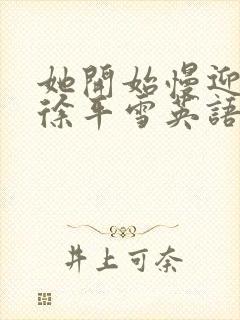 她開始慢迎
徐平雪英語
井上可奈